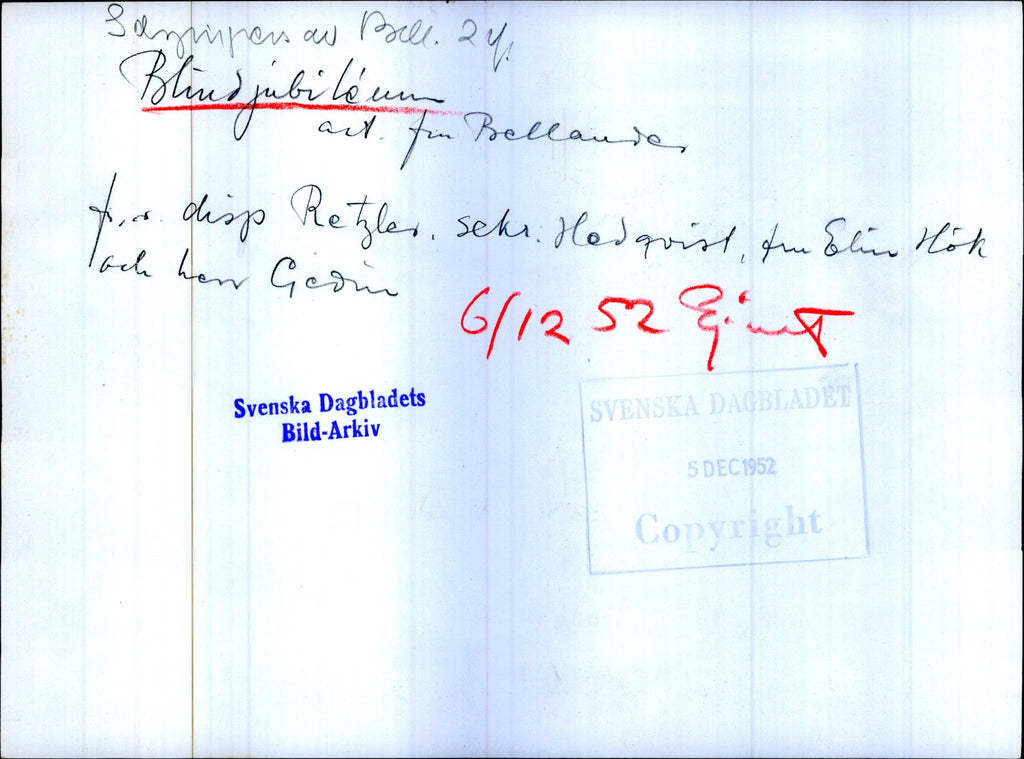 av Bell. 2 sp.
Blindjubiléum
art. fru Bellander
fr. v. disp Retzler, sekr. Hedqvist, fru Elin Hök
och herr Gedin
6/12 52
Svenska Dagbladets
Bild-Arkiv
SVENSKA DAGBLADET
5 DEC 1952
Copyright